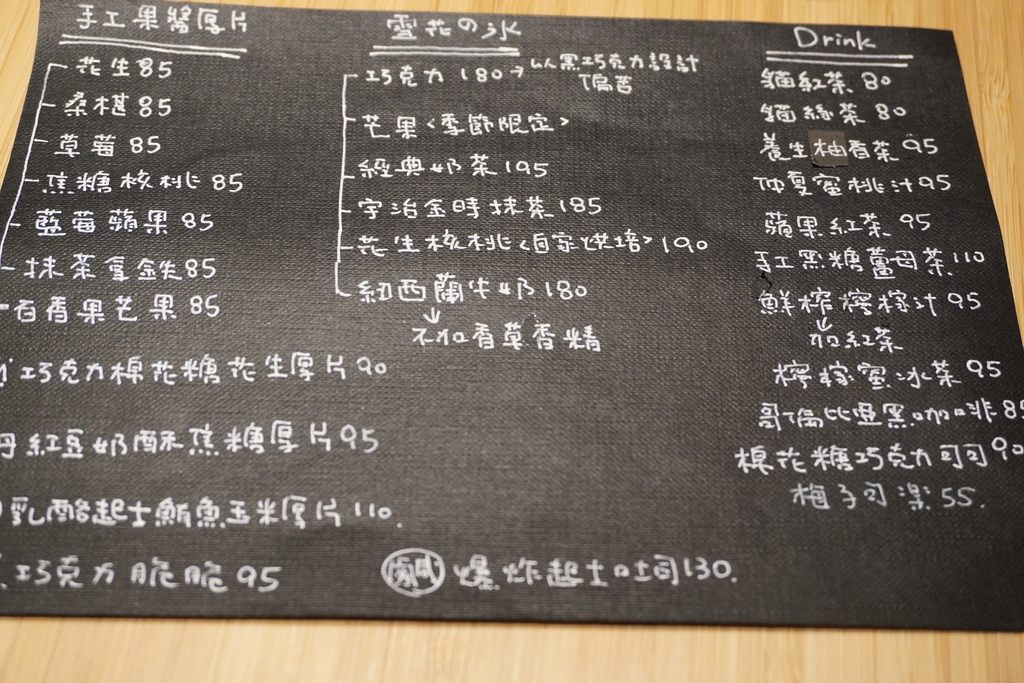 手工果醬厚片
花生85
桑椹85
草莓85
焦糖核桃85
藍莓蘋果85
抹茶拿鐵85
百香果芒果85
巧克力棉花糖花生厚片90
丹紅豆奶酥焦糖厚片95
乳酪起士鮪魚玉米厚片110.
巧克力脆脆95
雪花の冰
巧克力180→以黑巧克力設計
偏苦
芒果<季節限定>
經典奶茶195
宇治金時抹茶185
花生核桃<自家烘培>190
紐西蘭牛奶180
↓
不加香草香精
鹹 爆炸起士吐司130.
Drink
錫紅茶80
錫綠茶80
養生柚香茶95
仲夏蜜桃汁95
蘋果紅茶95
手工黑糖薑母茶110
鮮榨檸檬汁95
↓
加紅茶
檸檬蜜冰茶95
哥倫比亞黑咖啡85
棉花糖巧克力可可90
梅子可樂55.